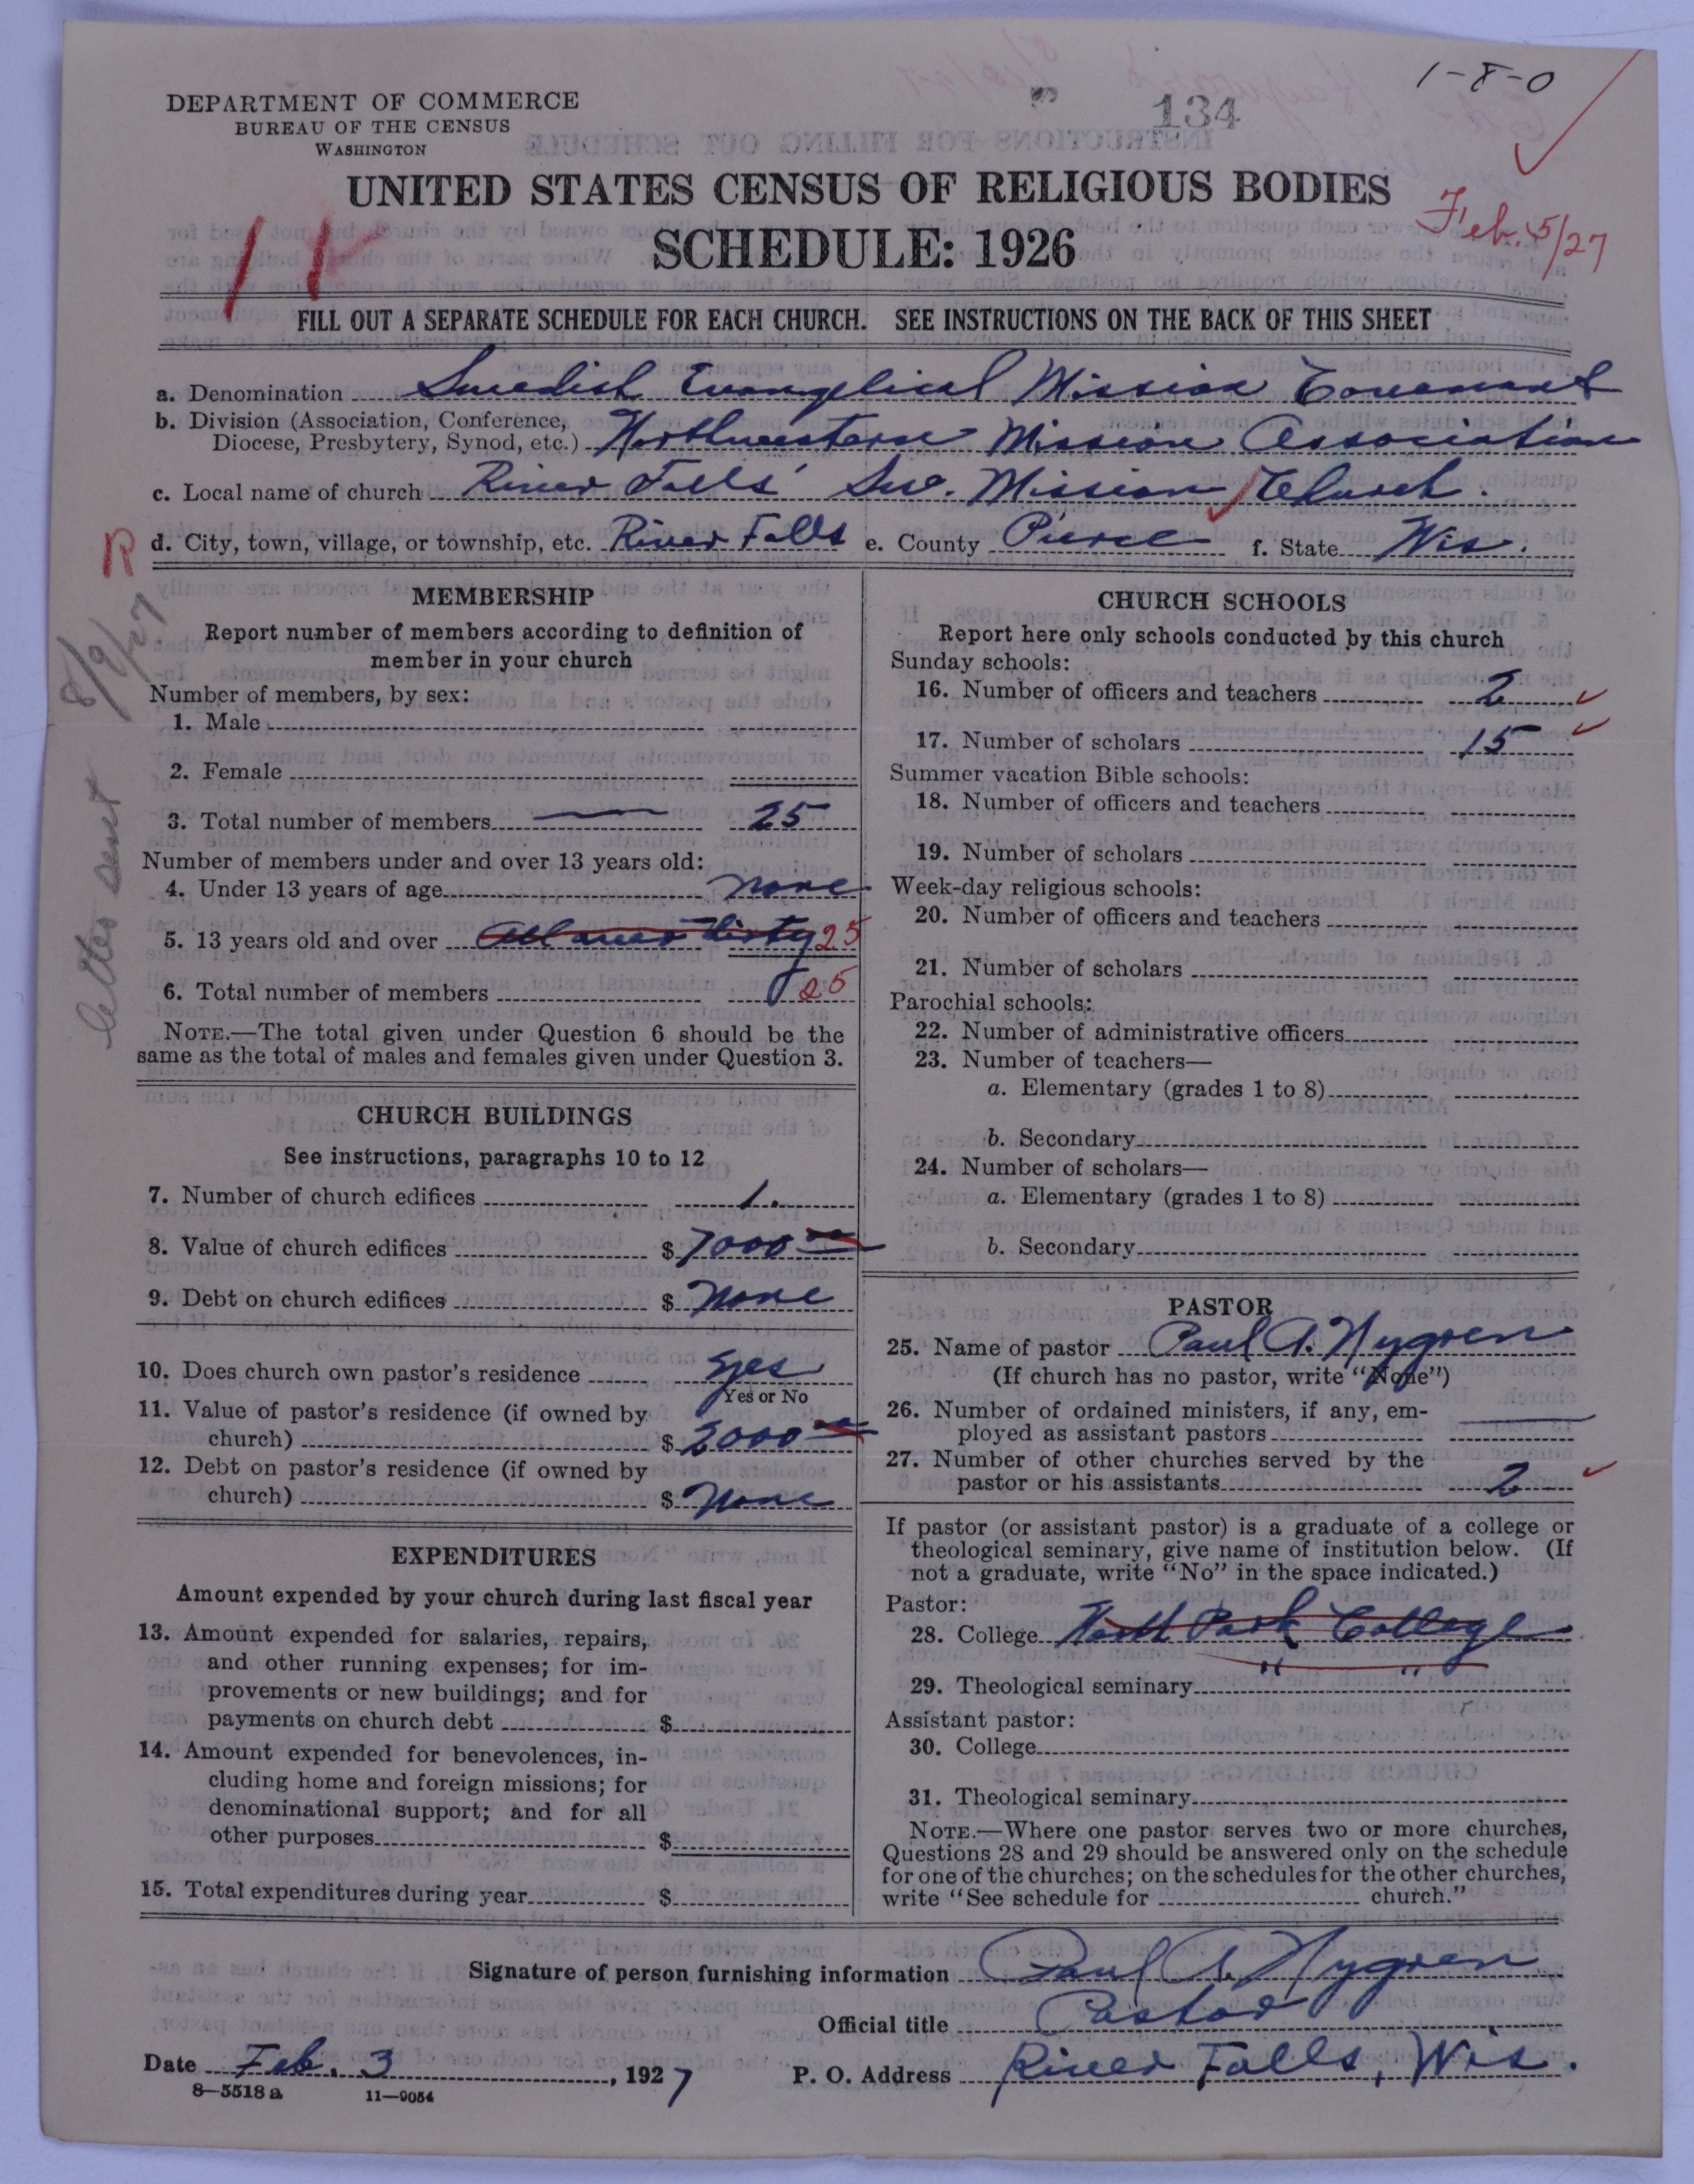 1-8-0
134
DEPARTMENT OF COMMERCE
BUREAU OF THE CENSUS
WASHINGTON
UNITED STATES CENSUS OF RELIGIOUS BODIES
SCHEDULE: 1926
Feb. 5/27
FILL OUT A SEPARATE SCHEDULE FOR EACH CHURCH. SEE INSTRUCTIONS ON THE BACK OF THIS SHEET
a. Denomination Swedish Evangelical Mission Covenant
b. Division (Association, Conference,
Diocese, Presbytery, Synod, etc.) Northwestern Mission Association
c. Local name of church River Falls Sw. Mission Church.
R d. City, town, village, or township, etc. River Falls e. County Pierce f. State Wis.
8/9/27
letter sent
MEMBERSHIP
Report number of members according to definition of
member in your church
Number of members, by sex:
1. Male
2. Female
3. Total number of members 25
Number of members under and over 13 years old:
4. Under 13 years of age none
5. 13 years old and over 25
6. Total number of members 25
NOTE.—The total given under Question 6 should be the
same as the total of males and females given under Question 3.
CHURCH BUILDINGS
See instructions, paragraphs 10 to 12
7. Number of church edifices 1.
8. Value of church edifices $ 7000
9. Debt on church edifices $ None
10. Does church own pastor's residence yes
Yes or No
11. Value of pastor's residence (if owned by
church) $ 2000
12. Debt on pastor's residence (if owned by
church) $ None
EXPENDITURES
Amount expended by your church during last fiscal year
13. Amount expended for salaries, repairs,
and other running expenses; for im-
provements or new buildings; and for
payments on church debt $
14. Amount expended for benevolences, in-
cluding home and foreign missions; for
denominational support; and for all
other purposes $
15. Total expenditures during year $
CHURCH SCHOOLS
Report here only schools conducted by this church
Sunday schools:
16. Number of officers and teachers 2
17. Number of scholars 15
Summer vacation Bible schools:
18. Number of officers and teachers
19. Number of scholars
Week-day religious schools:
20. Number of officers and teachers
21. Number of scholars
Parochial schools:
22. Number of administrative officers
23. Number of teachers—
a. Elementary (grades 1 to 8)
b. Secondary
24. Number of scholars—
a. Elementary (grades 1 to 8)
b. Secondary
PASTOR
25. Name of pastor Paul A. Nygren
(If church has no pastor, write "None")
26. Number of ordained ministers, if any, em-
ployed as assistant pastors
27. Number of other churches served by the
pastor or his assistants 2
If pastor (or assistant pastor) is a graduate of a college or
theological seminary, give name of institution below. (If
not a graduate, write "No" in the space indicated.)
Pastor:
28. College North Park College
29. Theological seminary " "
Assistant pastor:
30. College
31. Theological seminary
NOTE.—Where one pastor serves two or more churches,
Questions 28 and 29 should be answered only on the schedule
for one of the churches; on the schedules for the other churches,
write "See schedule for church."
Signature of person furnishing information Paul A. Nygren
Official title Pastor
Date Feb. 3, 1927 P. O. Address River Falls, Wis.
8—5518a 11—9054